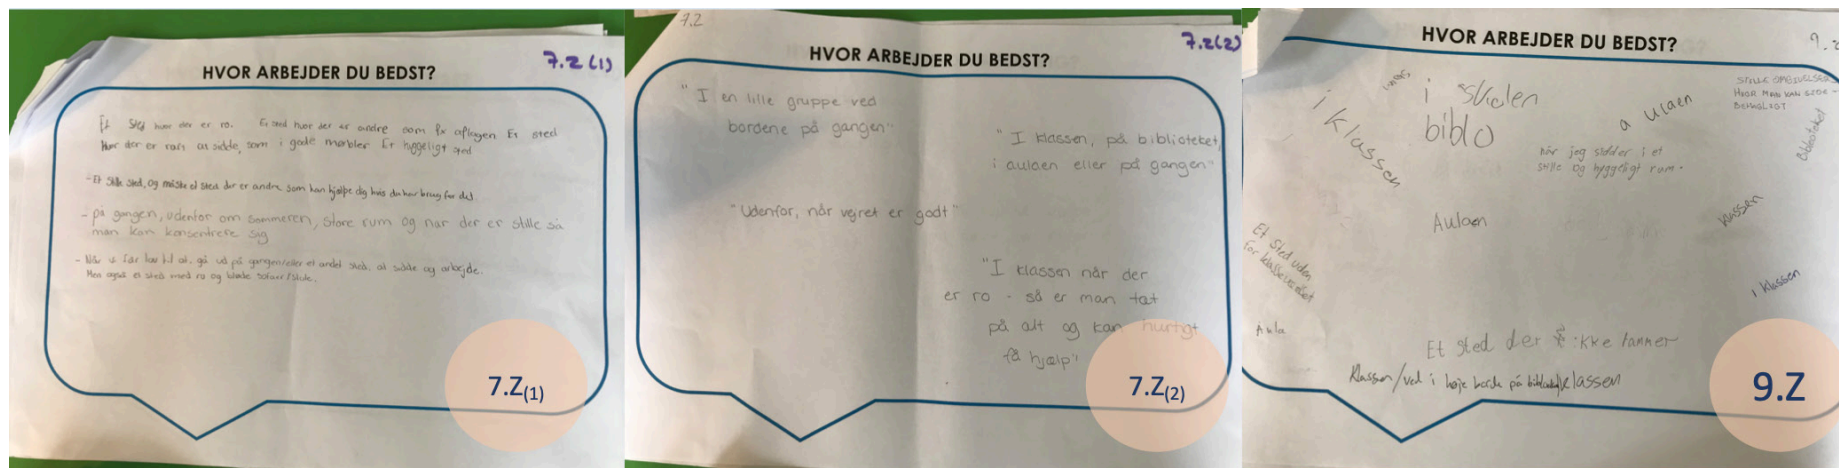 7.Z (1)
HVOR ARBEJDER DU BEDST?
Et sted hvor der er ro. Et sted hvor der er andre som fx aflagen Et sted
Hvor der er rart at sidde, som i gode møbler Et hyggeligt sted
- Et stille sted, og måske et sted der er andre som kan hjælpe dig hvis du har brug for det
- på gangen, udenfor om sommeren, store rum og når der er stille så
man kan koncentrere sig
- Når vi får lov til at gå ud på gangen/eller et andet sted, at sidde og arbejde.
Men også et sted med ro og bløde sofaer/stole.
7.Z(1)
7.Z
7.Z(2)
HVOR ARBEJDER DU BEDST?
"I en lille gruppe ved
bordene på gangen"
"I klassen, på biblioteket,
i aulaen eller på gangen"
"Udenfor, når vejret er godt"
"I klassen når der
er ro - så er man tæt
på alt og kan hurtigt
få hjælp"
7.Z(2)
HVOR ARBEJDER DU BEDST?
9.Z
i klassen
i skolen
biblo
a ulaen
STILLE OMGIVELSER
HVOR MAN KAN SIDE
BEHAGLIGT
Biblioteket
når jeg sidder i et
stille og hyggeligt rum.
Aulaen
klassen
Et sted uden
for klasseværelset
i klassen
Aula
Et sted der ikke larmer
Klassen/ved i høje borde på klassen
9.Z